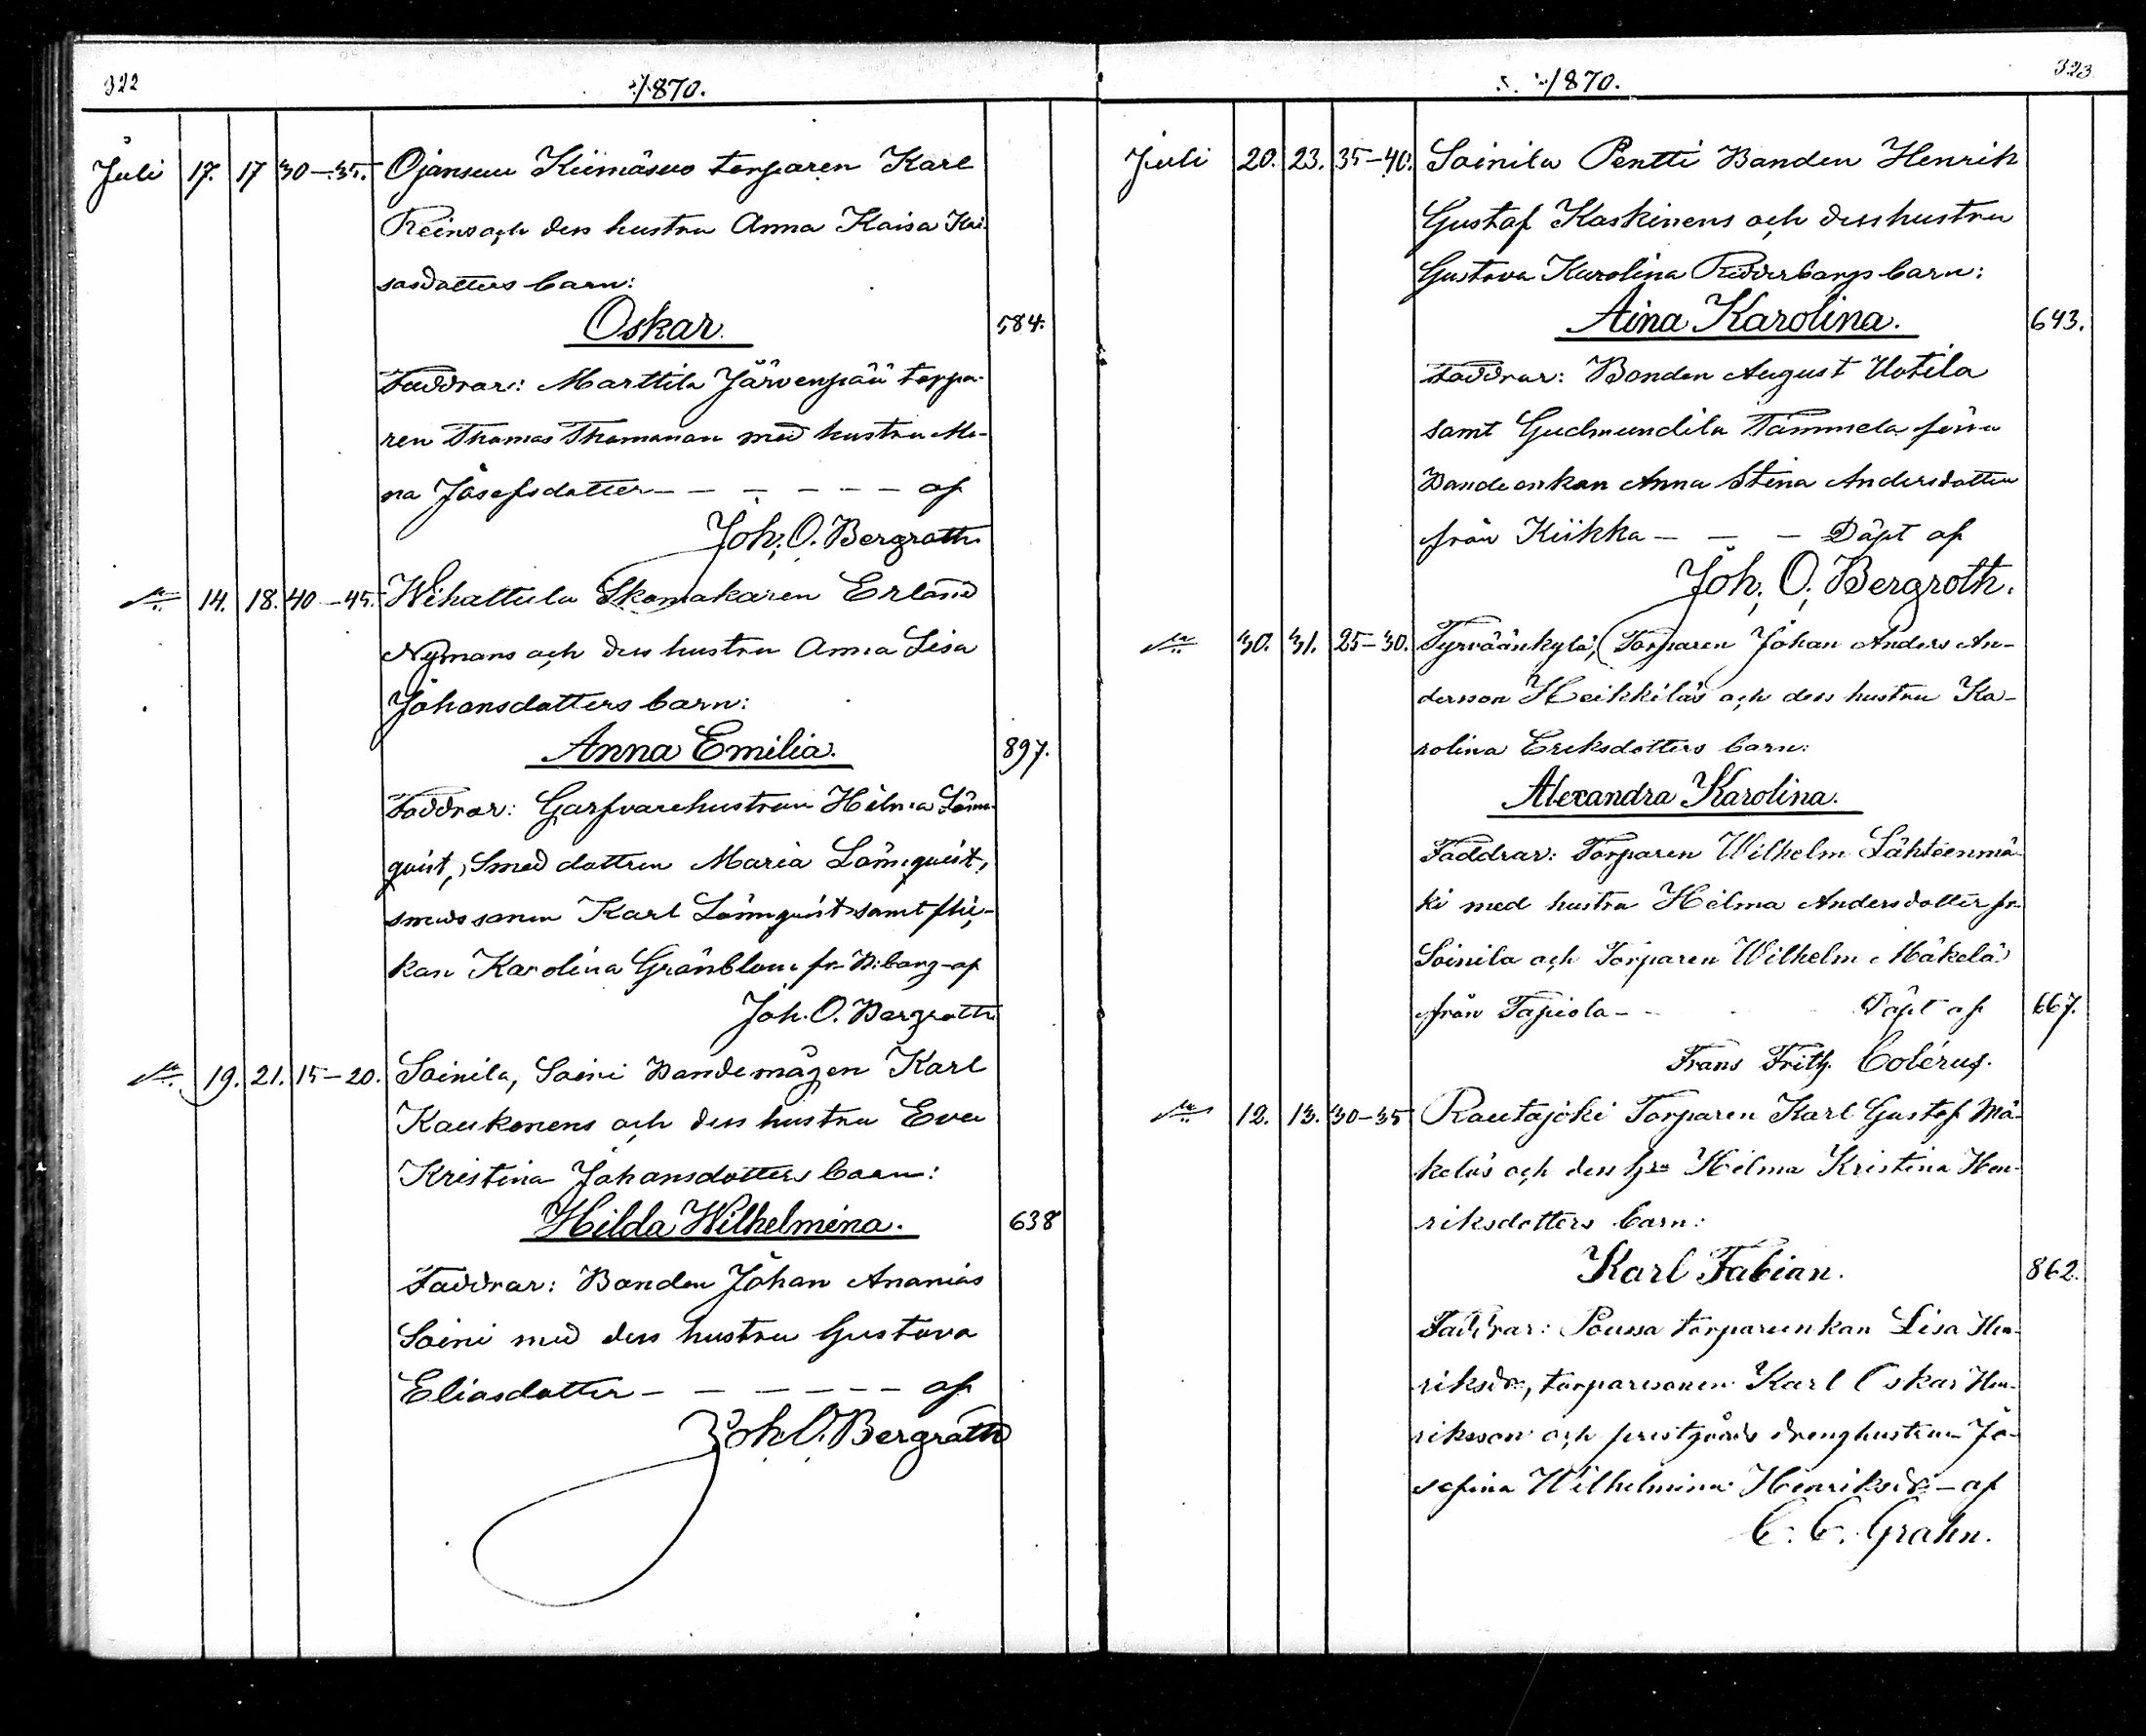 322
1870.
Juli 17. 17 30–35. Ojansuu Kiimäsuo torparen Karl
Reins och dess hustru Anna Kaisa Kai-
sasdotters barn:
Oskar. 584.
Faddrar: Marttila Järvenpää torpa-
ren Thomas Thomasson med hustru Ma-
na Josefsdotter – – – – – – af
Joh. O. Bergroth
14. 18. 40–45. Wihattula Skomakaren Erland
Nymans och dess hustru Anna Lisa
Johansdotters barn:
Anna Emilia. 897.
Faddrar: Garfvarehustrun Hilma Lönn-
quist, Smed dottren Maria Lönnquist,
smeds sonen Karl Lönnquist samt flic-
kan Karolina Gränblom fr. B:borg – af
Joh. O. Bergroth
19. 21. 15–20. Soinila, Soini Bondemågen Karl
Kaukonens och dess hustru Eva
Kristina Johansdotters barn:
Hilda Wilhelmina. 638
Faddrar: Bonden Johan Ananias
Soini med dess hustru Gustava
Eliasdotter – – – – – – af
Joh. O. Bergroth
323
1870.
Juli 20. 23. 35–40. Soinila Pentti Bonden Henrik
Gustaf Kaskinens och dess hustru
Gustava Karolina Ridderbergs barn:
Aina Karolina. 643.
Faddrar: Bonden August Uotila
samt Gudmundila Tämmela förra
Bondeenkan Anna Stina Andersdotter
från Kiikka – – – Döpt af
Joh. O. Bergroth.
30. 31. 25–30. Tyrväänkylä, Torparen Johan Anders An-
dersson Heikkiläs och dess hustru Ka-
rolina Eriksdotters barn:
Alexandra Karolina.
Faddrar: Torparen Wilhelm Lähteenmä-
ki med hustru Hilma Andersdotter fr.
Soinila och Torparen Wilhelm Mäkelä
från Tapiola – Döpt af 667.
Frans Frith. Colérus.
12. 13. 30–35 Rautajoki Torparen Karl Gustaf Mä-
keläs och dess h:u Hilma Kristina Hen-
riksdotters barn:
Karl Fabian. 862.
Faddrar: Poussa torpareenkan Lisa Hen-
riksdr, torparesonen Karl Oskar Hen-
riksson och prestgårds dränghustrun Jo-
sefina Wilhelmina Henriksdr – af
C. C. Grahn.